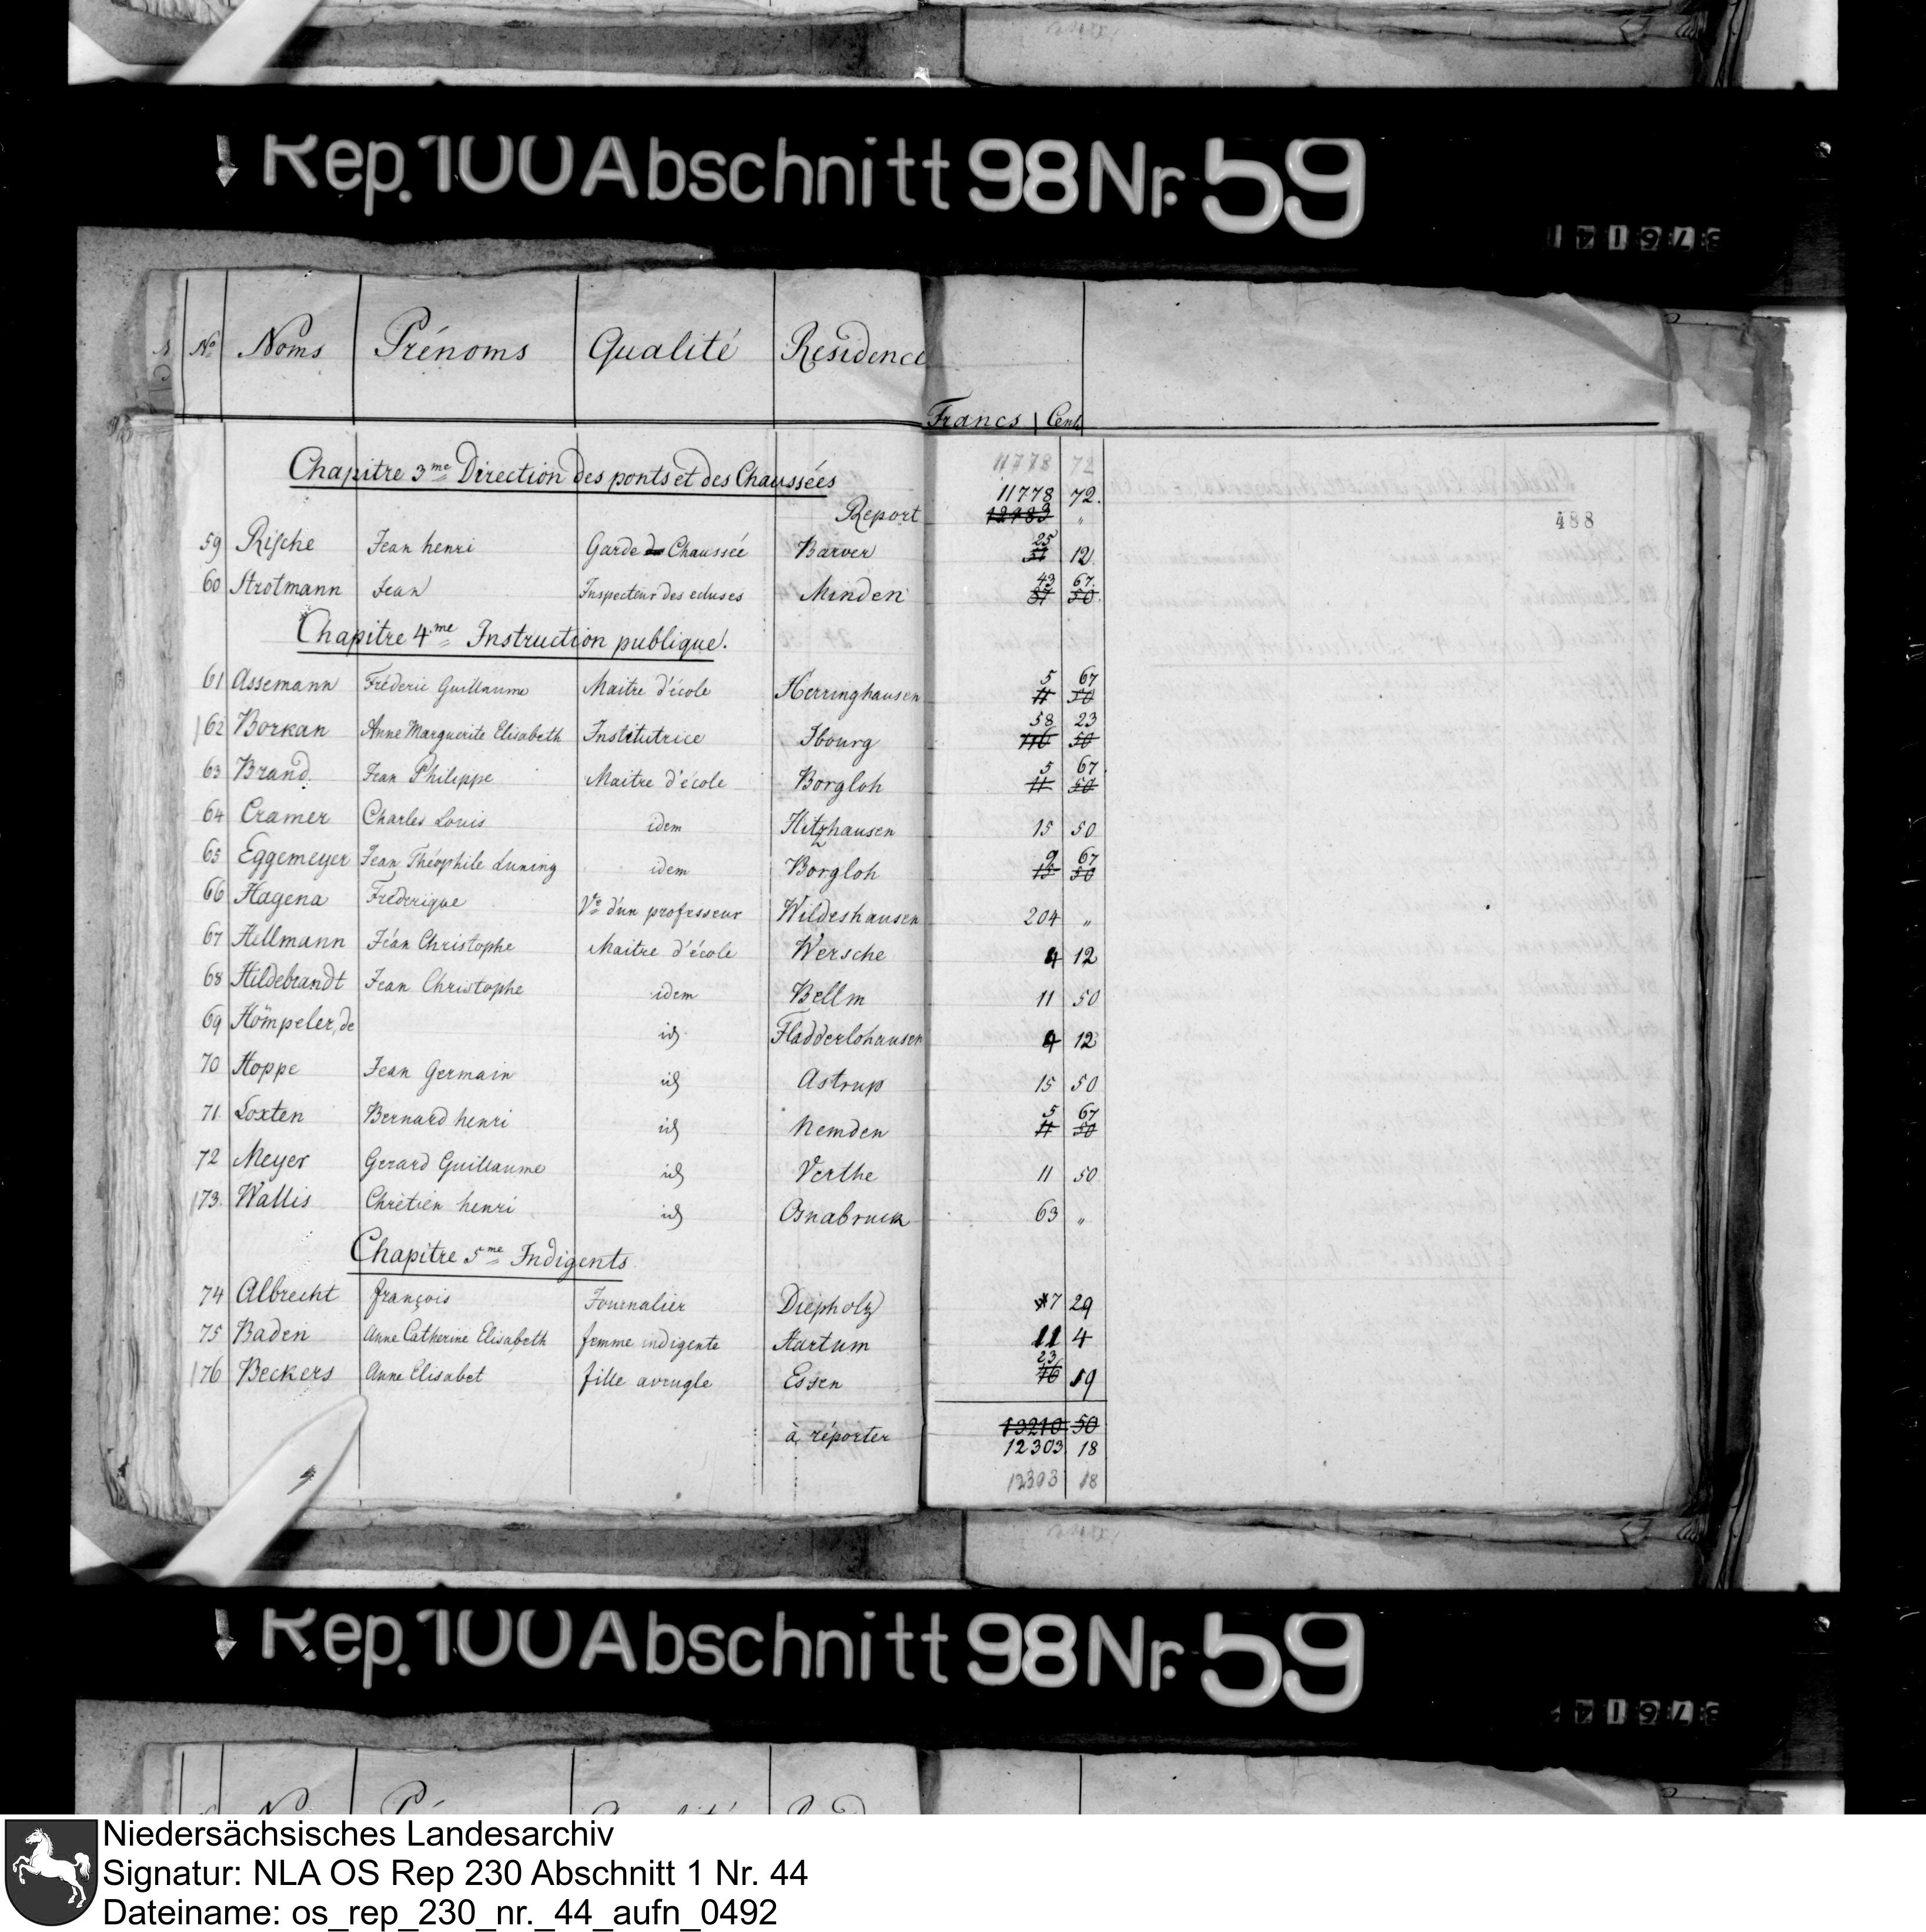 Rep. 100 Abschnitt 98 Nr. 59
No Noms Prénoms Qualité Residence
Francs Cent
Chapitre 3me Direction des ponts et des Chaussées
11778 72
11778 72.
Report 12983 "
488
59 Rische Jean henri Garde de Chaussée Barver 25 31 12
60 Strotmann Jean Inspecteur des ecluses Minden 43 67. 87 50.
Chapitre 4me Instruction publique.
61 Assemann Fréderic Guillaume Maitre d'école Herringhausen 5 67 11 50
62 Borkan Anne Marguerite Elisabeth Institutrice Ibourg 58 23 116 50
63 Brand. Jean Philippe Maitre d'école Borgloh 5 67 11 50
64 Cramer Charles Louis idem Hitzhausen 15 50
65 Eggemeyer Jean Théophile Luning idem Borgloh 9 67 15 50
66 Hagena Fréderique Ve d'un professeur Wildeshausen 204 "
67 Hellmann Jean Christophe Maitre d'école Wersche 4 12
68 Hildebrandt Jean Christophe idem Bellm 11 50
69 Hömpeler, de id Fladderlohausen 4 12
70 Hoppe Jean Germain id Astrup 15 50
71 Loxten Bernard henri id Nemden 5 67 11 50
72 Meyer Gerard Guillaume id Verthe 11 50
73. Wallis Chrètien henri id Osnabruck 63 "
Chapitre 5me Indigents
74 Albrecht françois Journalier Diepholz 7 29
75 Baden Anne Catherine Elisabeth femme indigente Aartum 11 4
76 Beckers Anne Elisabet fille aveugle Essen 23 76 19
à réporter 13210 50
12303 18
12303 18
Rep. 100 Abschnitt 98 Nr. 59
Niedersächsisches Landesarchiv
Signatur: NLA OS Rep 230 Abschnitt 1 Nr. 44
Dateiname: os_rep_230_nr._44_aufn_0492